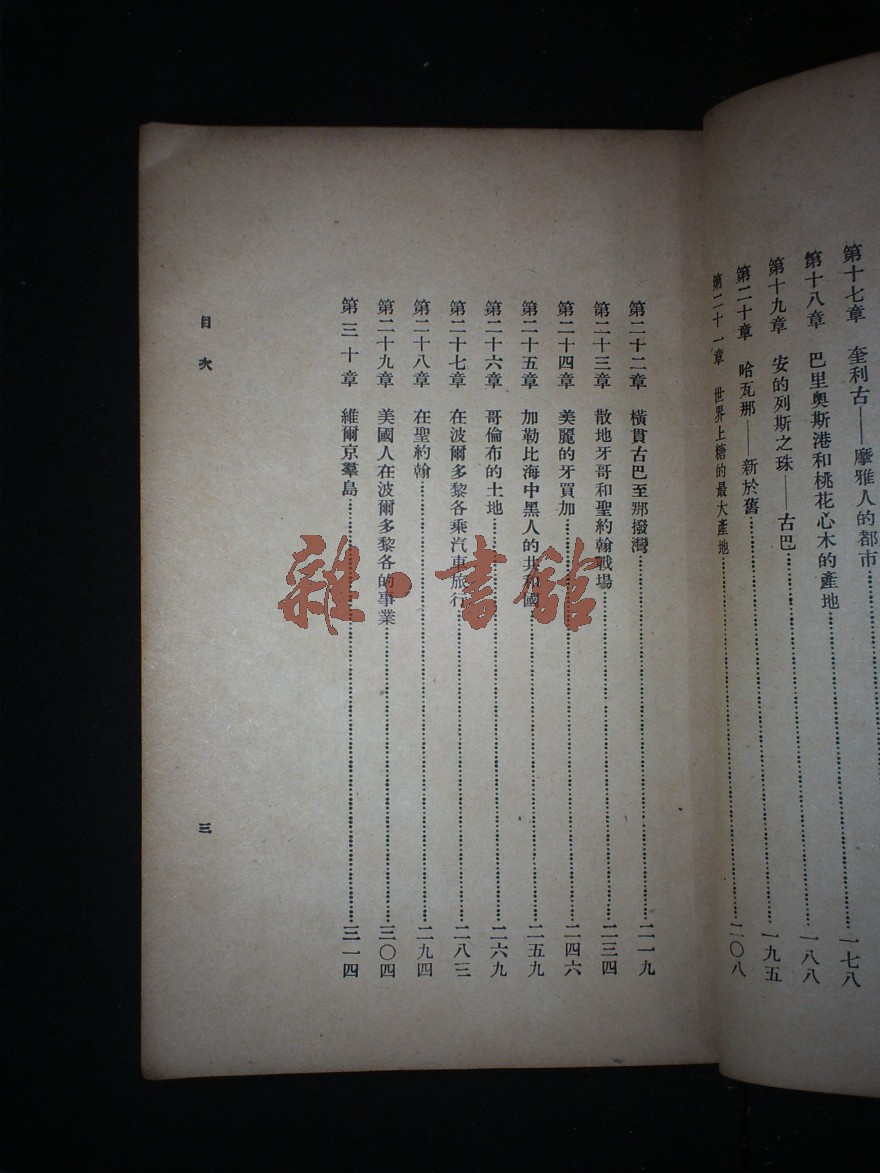 第十七章 奎利古——摩雅人的都市……一七八
第十八章 巴里奧斯港和桃花心木的產地……一八八
第十九章 安的列斯之珠——古巴……一九五
第二十章 哈瓦那——新於舊
第二十一章 世界上糖的最大產地……二〇八
第二十二章 橫貫古巴至那撥灣……二一九
第二十三章 散地牙哥和聖約翰戰場……二三四
第二十四章 美麗的牙買加……二四六
第二十五章 加勒比海中黑人的共和國……二五九
第二十六章 哥倫布的土地……二六九
第二十七章 在波爾多黎各乘汽車旅行……二八三
第二十八章 在聖約翰……二九四
第二十九章 美國人在波爾多黎各的事業……三〇四
第三十章 維爾京羣島……三一四
目次
三
雜·書館